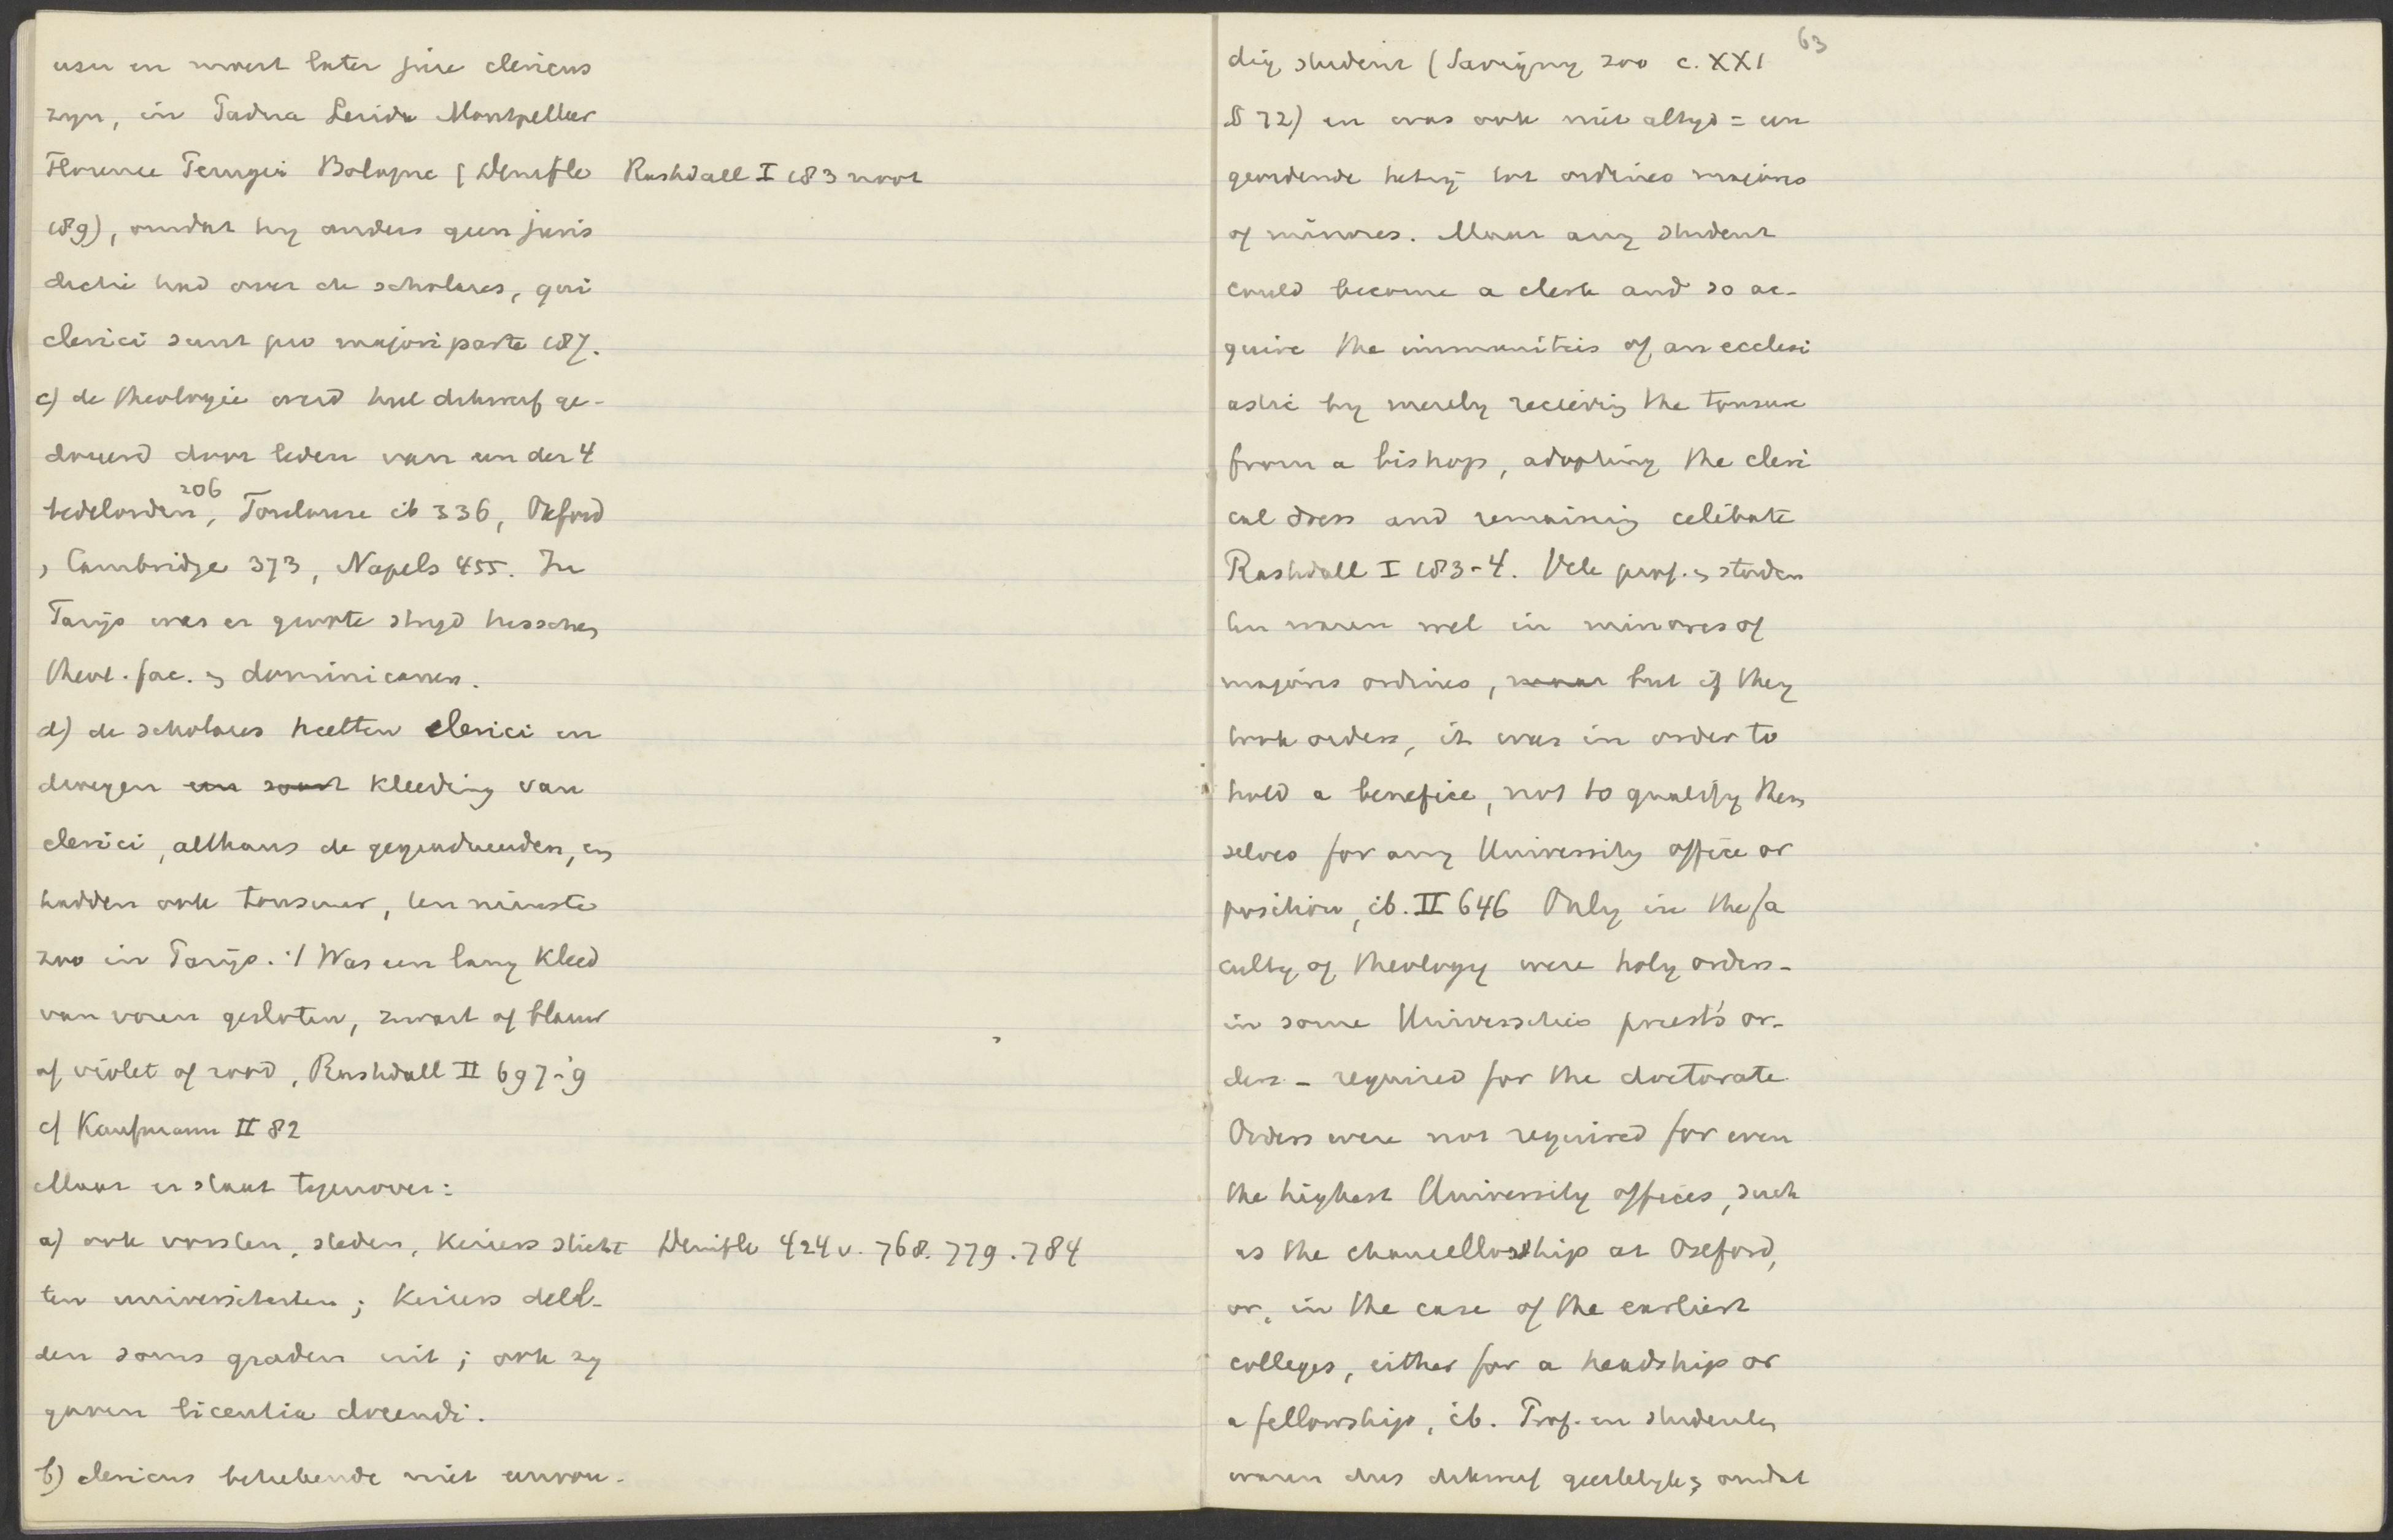 usu en moest later jure clericus
zyn, in Padua Lerida Montpellier
Florence Perugia Bologne (Denifle
Rashdall I 183 noot
189), omdat hy anders geen juris
dictie had over de scholares, qui
clerici sunt pro majori parte 187.
c) de theologie werd heel dikwerf ge-
doceerd door leden van een der 4
bedelorden, 206 Toulouse ib 336, Oxford
, Cambridge 373, Napels 455. In
Parijs was er groote stryd tusschen
theol. fac. en dominicanen.
d) de scholares heetten clerici en
droegen een soort kleeding van
clerici, althans de gegradueerden, en
hadden ook tonsuur, ten minste
zoo in Parijs. :/ Was een lang kleed
van voren gesloten, zwart of blauw
of violet of rood, Rashdall II 697-9
cf Kaufmann II 82
Maar er staat tegenover:
a) ook vorsten, steden, keizers sticht
Denifle 424 v. 768. 779. 784
ten universiteiten; keizers deel-
den soms graden uit; ook zy
gaven licentia docendi.
b) clericus beteekende niet eenvou-
63
dig student (Savigny zoo c. XXI
§ 72) en was ook niet altyd = een
geordende hetzij tot ordines majores
of minores. Maar any student
could become a clerk and so ac-
quire the immunities of an ecclesi
astic by merely receiving the tonsure
from a bishop, adopting the cleri
cal dress and remaining celibate
Rashdall I 183-4. Vele prof. en studen
ten waren wel in minores of
majores ordines, maar but if they
took orders, it was in order to
hold a benefice, not to qualify them
selves for any University office or
position, ib. II 646 Only in the fa
culty of theology were holy orders -
in some Universities priest's or-
ders - required for the doctorate
Orders were not required for even
the highest University offices, such
as the chancellorship at Oxford,
or, in the case of the earliest
colleges, either for a headship or
a fellowship, ib. Prof. en studenten
waren dus dikwerf geestelyk, omdat